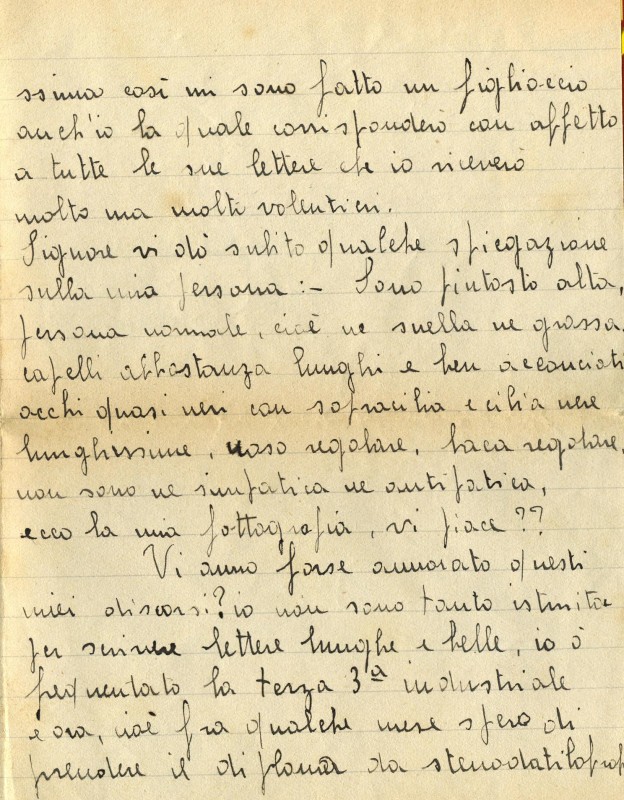 ssima così mi sono fatto un figlioccio
anch'io la quale corrisponderò con affetto
a tutte le sue lettere che io riceverò
molto ma molti volentieri.
Signore vi dò subito qualche spiegazione
sulla mia persona:- Sono piutosto alta,
persona normale, cioè ne snella ne grossa.
capelli abbastanza lunghi e ben acconciati
occhi quasi neri con sopracilia e cilia nere
lunghissime, naso regolare, boca regolare,
non sono ne simpatica ne antipatica,
ecco la mia fottografia, vi piace??
Vi anno forse annoiato questi
miei discorsi? io non sono tanto istruita
per scrivere lettere lunghe e belle, io ò
frequentato la terza 3ª industriale
e ora, cioè fra qualche mese spero di
prendere il diploma da